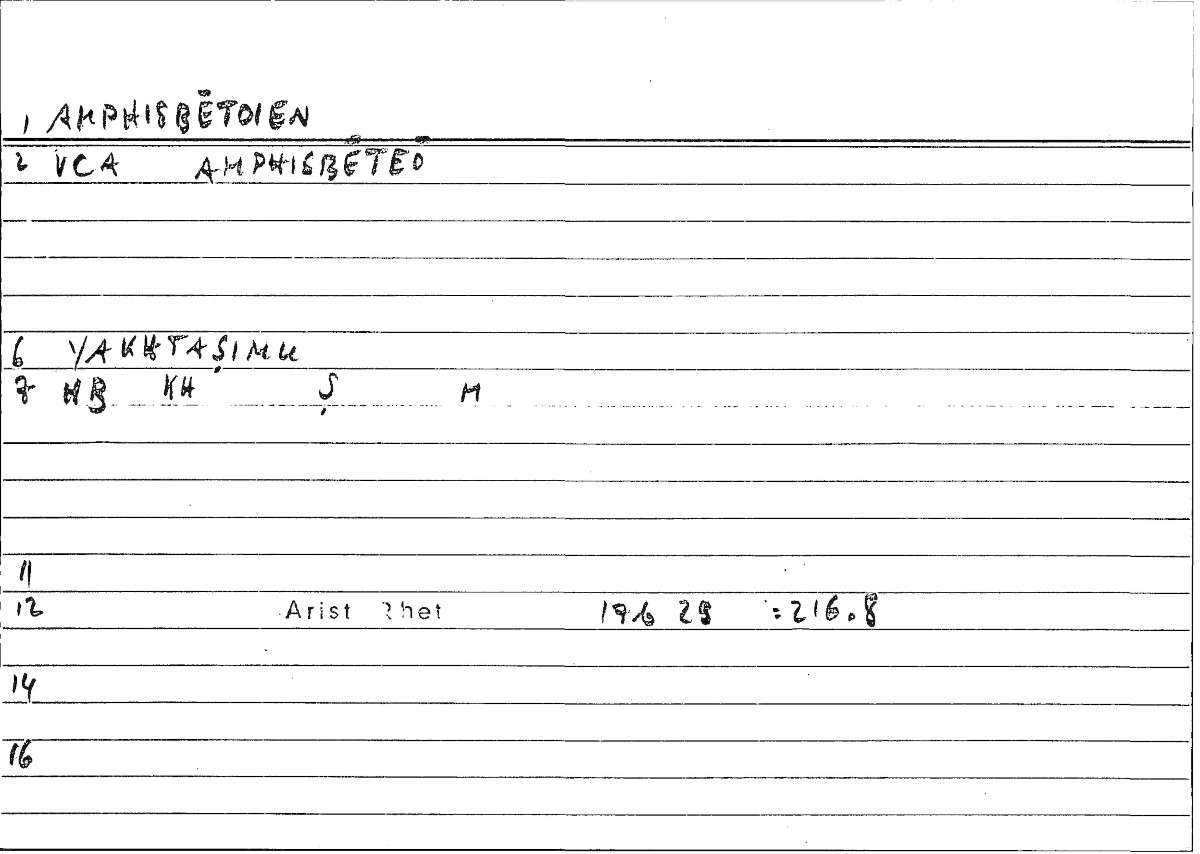 1 AMPHISBĒTOIEN
2 VCA AMPHISBĒTEŌ
6 YAKHTAṢIMU
7 HB KH Ṣ M
11
12 Arist Rhet 196 28 :216.8
14
16